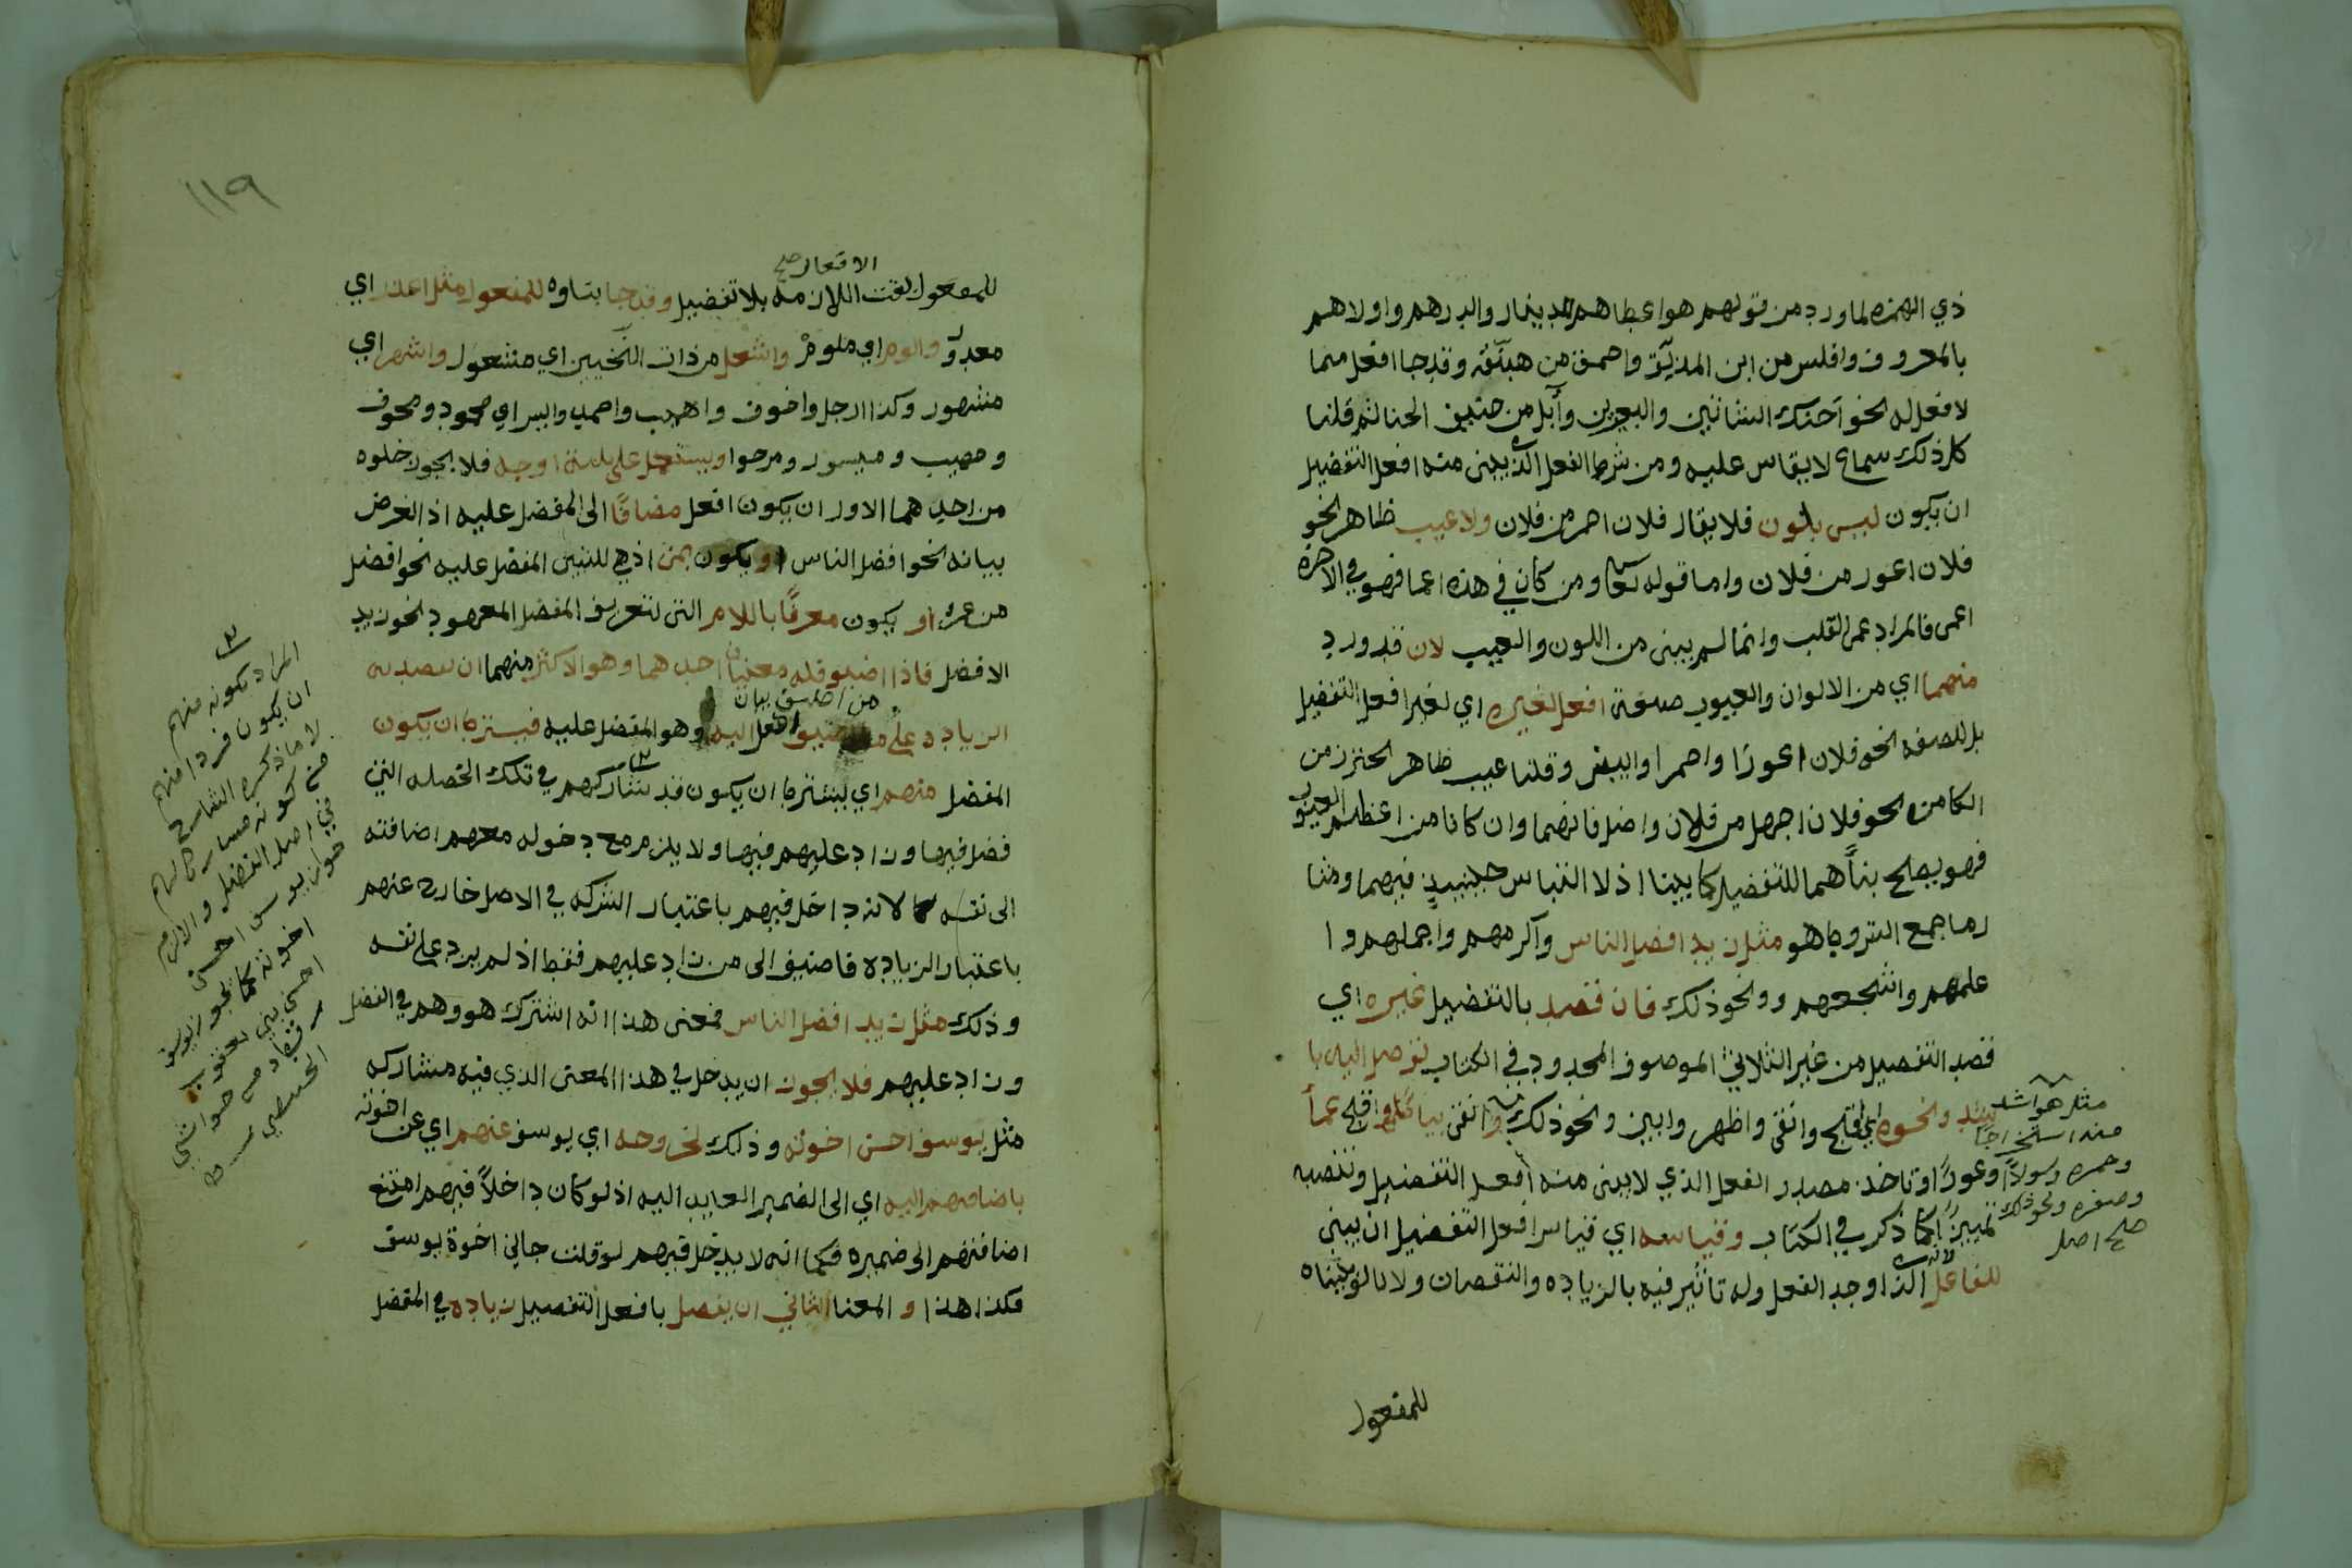 ذي الهمزه لما ورد من قولهم هو اعطاهم للدينار والدرهم واولاهم
بالمعروف وافلس من ابن المذلق واحمق من هبنقه وقد جا افعل مما
لا فعل له نحو احنك الشاتين والبعيرين وآبل من حنيف الحناتم قلنا
كل ذلك سماع لا يقاس عليه ومن شرط الفعل الذي يبنى منه افعل التفضيل
ان يكون ليس بلون فلا يقال فلان احمر من فلان ولا عيب ظاهر نحو
فلان اعور من فلان واما قوله تعا ومن كان في هذه اعما فهو في الاخره
اعمى فالمراد عمى القلب وانما لم يبنى من اللون والعيب لان قد ورد
منهما اي من الالوان والعيوب صيغة افعل لغيره اي لغير افعل التفضيل
بل للصفه نحو فلان اعور او احمر او ابيض وقلنا عيب ظاهر احترز من
الكامن نحو فلان اجهل من فلان واضل فانهما وان كانا من اعظم العيوب
فهو يصلح بنآهما للتفضيل كما بينا اذ لا التباس حينيذ فيهما ومثا
ل ما جمع الشروط هو مثل زيد افضل الناس وآكرمهم واجملهم وا
علمهم واشجعهم وونحو ذلك فان قصد بالتفضيل غيره اي
قصد التفصيل من غير الثلاثي الموصوف المحدود في الكتاب توصل اليه با
شد ونحوه اي اقبح وانقى واظهر وابين ونحو ذلك وانقى بياضا واقبح عمأ
مثل هو اشد
منه استخراجا
وحمره وسوادًا وعورًا وتاخذ مصدر الفعل الذي لا يبنى منه افعل التفضيل وتنصبه
وصفره ونحو ذلك
صلح اصل
تمييزًا كما ذكر في الكتاب وقياسه اي قياس افعل التفضيل ان يبنى
للفاعل لانه الذ اوجد الفعل وله تاثير فيه بالزياده والنقصان ولانا لو بنيناه
للمفعول
١١٩
الافعال صح
للمفعول بقت اللازمه بلا تفضيل وقد جا بناوه للمفعول مثل اعذر اي
معذور والوم اي ملوم واشغل من ذات النحيين اي مشغول واشهر اي
مشهور وكذا ارجل واخوف واهيب واحمد وايسر اي محمود ومخوف
ومهيب وميسور ومرجوا ويستعمل على ثلثة اوجه فلا يجوز خلوه
من احدهما الاول ان يكون افعل مضافًا الى المفضل عليه اذ الغرض
بيانه نحو افضل الناس او يكون بمن اذ هي للتبيين المفضل عليه نحو افضل
من عمر او يكون معرفًا باللام التي لتعريف المفضل المعهود نحو زيد
الافضل فاذا اضيف فله معنيان احدهما وهو الاكثر منهما ان يقصد به
من اضيق بيان
الزياده على من اضيف افعل اليه وهو المفضل عليه فيشترط ان يكون
المفضل منهم اي يشترط ان يكون قد شاركهم في تلك الخصله التي
فضل فيها وزاد عليهم فيها ولا يلزم مع دخوله معهم اضافته
الى نفسه لانه داخل فيهم باعتبار الشركه في الاصل خارج عنهم
باعتبار الزياده فاضيف الى من زاد عليهم فقط اذ لم يرد على نفسه
وذلك مثل زيد افضل الناس فمعنى هذا انه اشترك هو وهم في الفضل
وزاد عليهم فلا يجوز ان يدخل في هذا المعنى الذي فيه مشاركه
مثل يوسف احسن اخوته وذلك لخروجه اي يوسف عنهم اي عن اخوته
باضافتهم اليه اي الى الضمير العايد اليه اذ لو كان داخلاً فيهم امتنع
اضافتهم الى ضميره فكما انه لا يدخل فيهم لو قلت جاني اخوة يوسف
فكذا هذا و المعنا الثاني ان يفصل بافعل التفصيل زياده في المفضل
المراد بكونه منهم
ان يكون فردا منهم
لا ما ذكره الشارح
من كونه مشاركا لهم
في اصل الفضل والا لزم
جواز يوسف احسن
اخوته كما يجوز يوسف
احسن بني يعقوب